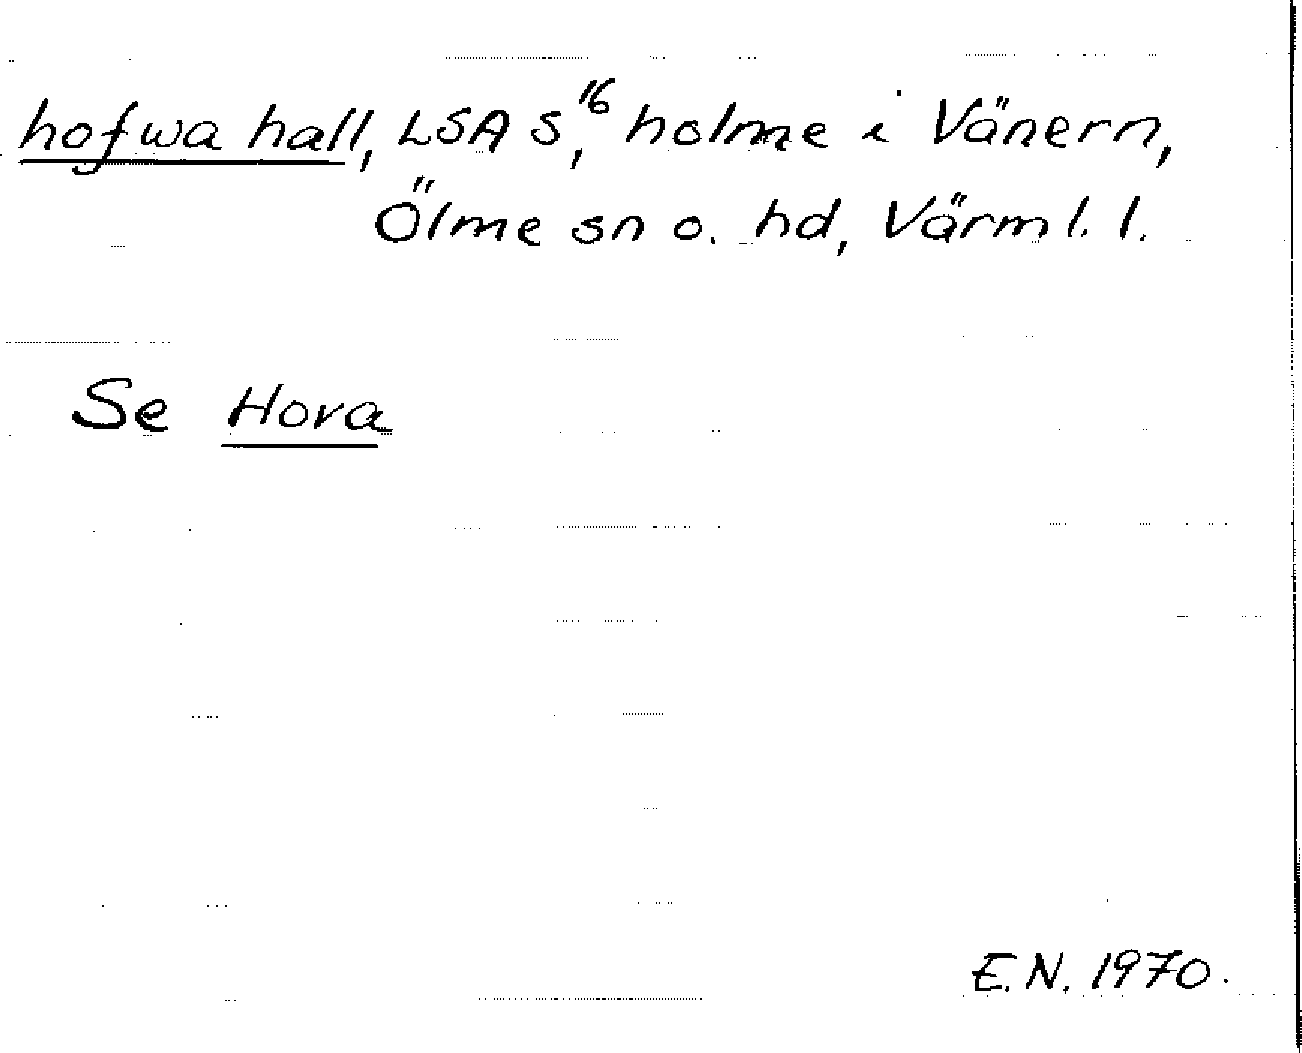 hofwa hall, LSA S¹⁶, holme i Vänern,
Ölme sn o. hd, Värml. l.
Se Hova
E.N. 1970.